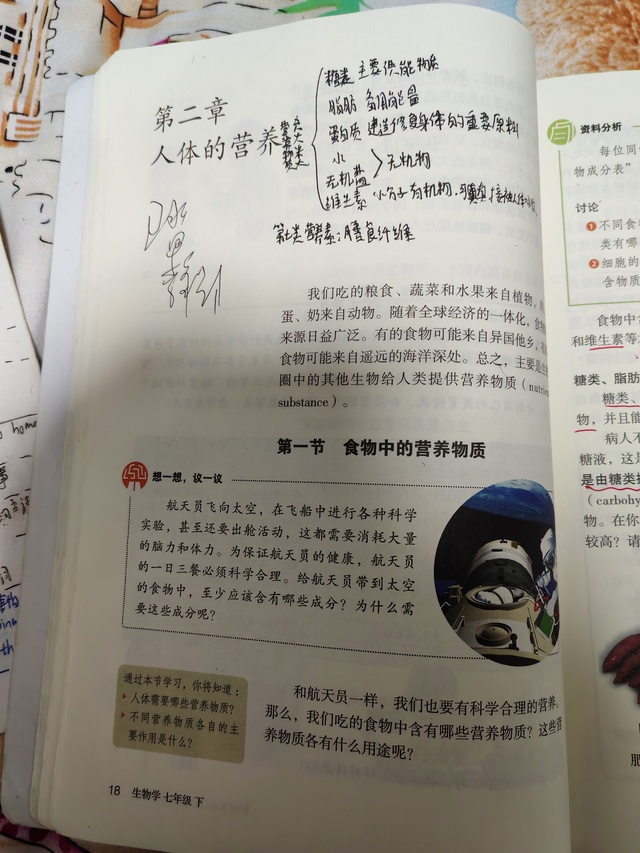 第二章
人体的营养
六大类营养素
糖类 主要供能物质
脂肪 备用能量
蛋白质 建造修复身体的重要原料
水
无机盐 > 无机物
维生素 小分子有机物
第七类营养素:膳食纤维
我们吃的粮食、蔬菜和水果来自植物,
蛋、奶来自动物。随着全球经济的一体化,食物
来源日益广泛。有的食物可能来自异国他乡,
食物可能来自遥远的海洋深处。总之,主要是
圈中的其他生物给人类提供营养物质(nutrient
substance)。
第一节 食物中的营养物质
想一想,议一议
航天员飞向太空,在飞船中进行各种科学
实验,甚至还要出舱活动,这都需要消耗大量
的脑力和体力。为保证航天员的健康,航天员
的一日三餐必须科学合理。给航天员带到太空
的食物中,至少应该含有哪些成分?为什么需
要这些成分呢?
通过本节学习,你将知道:
人体需要哪些营养物质?
不同营养物质各自的主
要作用是什么?
和航天员一样,我们也要有科学合理的营养。
那么,我们吃的食物中含有哪些营养物质?这些营
养物质各有什么用途呢?
18 生物学 七年级 下
资料分析
每位同
物成分表”
讨论
1 不同食
类有哪
2 细胞的
含物质
食物中含
和维生素等
糖类、脂肪
糖类、
物,并且能
病人不
糖液,这是
是由糖类提
(carbohy
物。在你
较高?请
肥